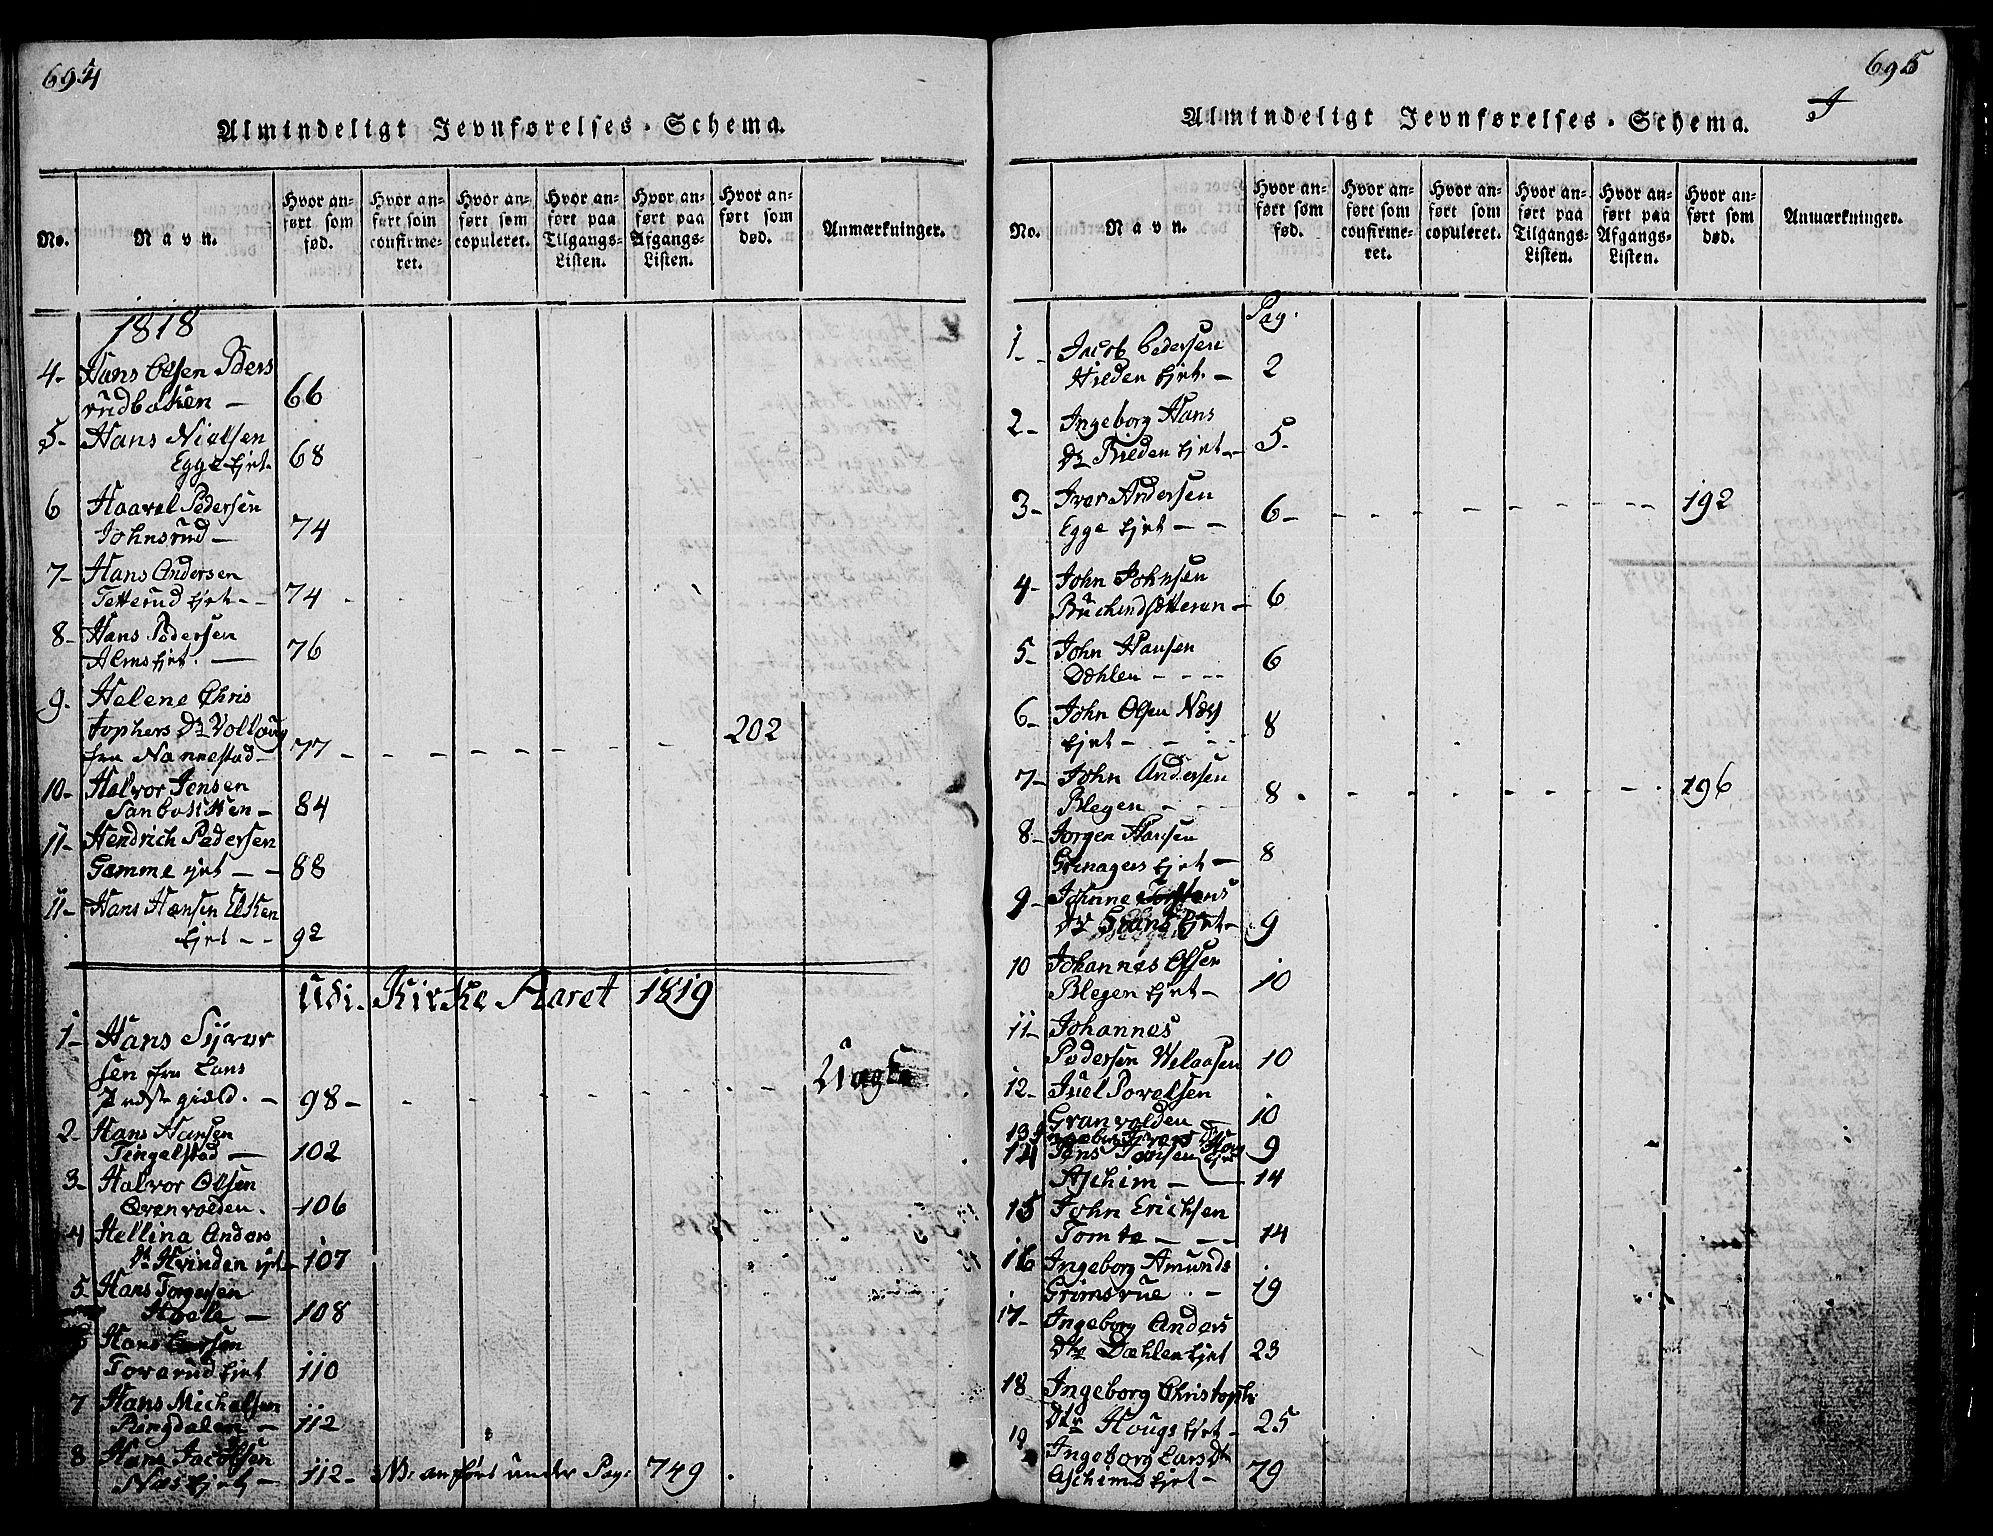 694
Almindeligt Jevnførelses-Schema.
No.
Navn.
Hvor anført som fød.
Hvor anført som confirmeret.
Hvor anført som copuleret.
Hvor anført paa Tilgangs-Listen.
Hvor anført paa Afgangs-Listen.
Hvor anført som død.
Anmærkninger.
1818
4- Hans Olsen
rudbaken - 66
5- Hans Nielsen
Egge Ejet. 68
6 Haavel Pedersen
Johnsrud - 74
7- Hans Andersen
Tetterud Ejet - - 74
8- Hans Pedersen
Alms Ejet. - 76
9. Helene Chris
tophers Dr
fra Nannestad - 77 - - - - - - 202
10- Halvor Jensen
84
11- Hendrich Pedersen
Gamme ejet - - 88
11- Hans Hansen
Ejet - - 92
Udi Kirke Aaret 1819
1- Hans Syver
sen fra Lans
gield. - 98 - - - - - - -
2- Hans Hansen
Tingelstad - 102
3- Halvor Olsen
106
4 Hellina Anders
Dr Hvinden ejet 107
5 Hans Torgersen
108
Hans
Ejet 110
7 Hans Michelsen
Ringdalen - 112
8 Hans Jacobsen
Næs Ejet - 112 - NB: anført under Pag: 749
695
J
Almindeligt Jevnførelses-Schema.
No.
Navn.
Hvor anført som fød.
Hvor anført som confirmeret.
Hvor anført som copuleret.
Hvor anført paa Tilgangs-Listen.
Hvor anført paa Afgangs-Listen.
Hvor anført som død.
Anmærkninger.
Pag.
1- Jacob Pedersen
Ejet. - 2
2- Ingeborg Hans
Dr Ejet - 5-
3- Iver Andersen
Egge Ejet - - 6 - - - - - - 192
4- John Johnsen
6
5- John Hansen
Dæhlen - - - - 6
6- John Olsen Næs
Ejet - - - - 8
7- John Andersen
Blegen - - - 8 - - - - - - 196
8- Jorgen Hansen
Grinagers Ejet - 8
9- Johnne
Dr Ejet - 9
10 Johannes Olsen
Blegen Ejet - 10
11- Johannes
Pedersen 10
12- Juel Povelsen
Granvolden - 10
13 9
14
Aschim - 14
15 John Erichsen
Tomte - - - 14
16 Ingeborg Amunds
Grimsrue - 19
17- Ingeborg Anders
Dtr Dæhlen Ejet 23
18 Ingeborg Christophr
Dtr Hougs Ejet - 25
19 Ingeborg Lars Dtr
Aschims Ejet - 29